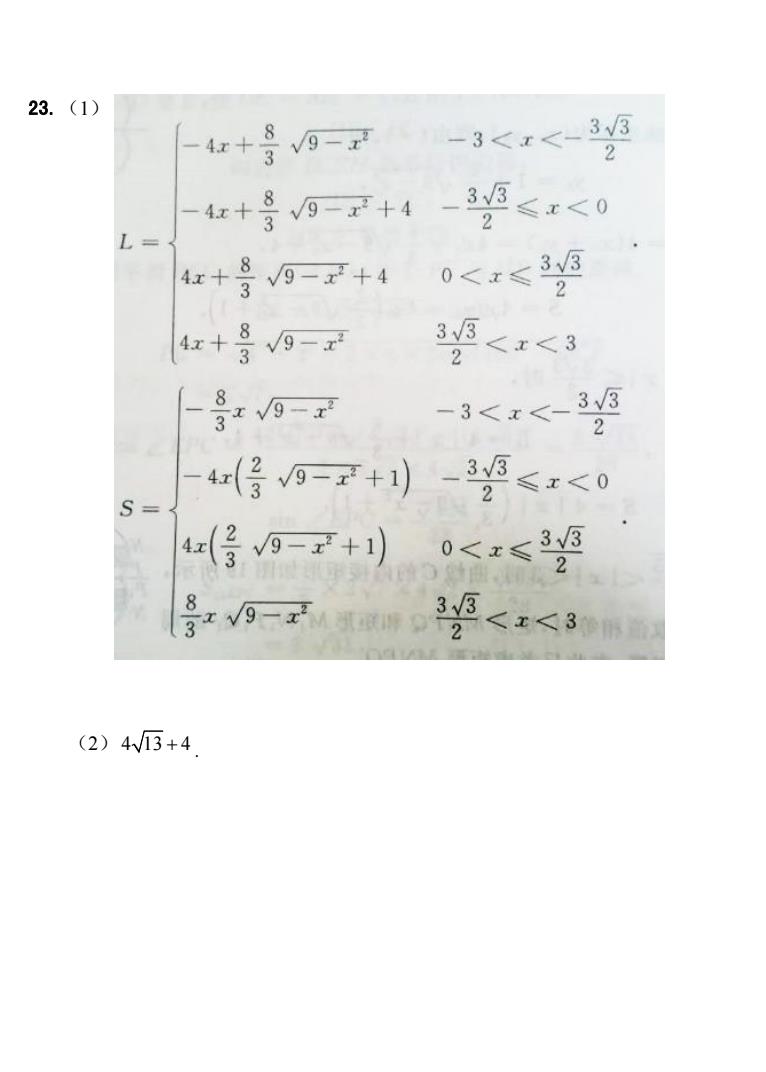 23. （1）
L = { -4x + 8/3 √(9 - x²)    -3 < x < -3√3/2
-4x + 8/3 √(9 - x²) + 4    -3√3/2 ⩽ x < 0
4x + 8/3 √(9 - x²) + 4    0 < x ⩽ 3√3/2
4x + 8/3 √(9 - x²)    3√3/2 < x < 3 .
S = { -8/3 x √(9 - x²)    -3 < x < -3√3/2
-4x(2/3 √(9 - x²) + 1)    -3√3/2 ⩽ x < 0
4x(2/3 √(9 - x²) + 1)    0 < x ⩽ 3√3/2
8/3 x √(9 - x²)    3√3/2 < x < 3 .
（2）4√13 + 4 .